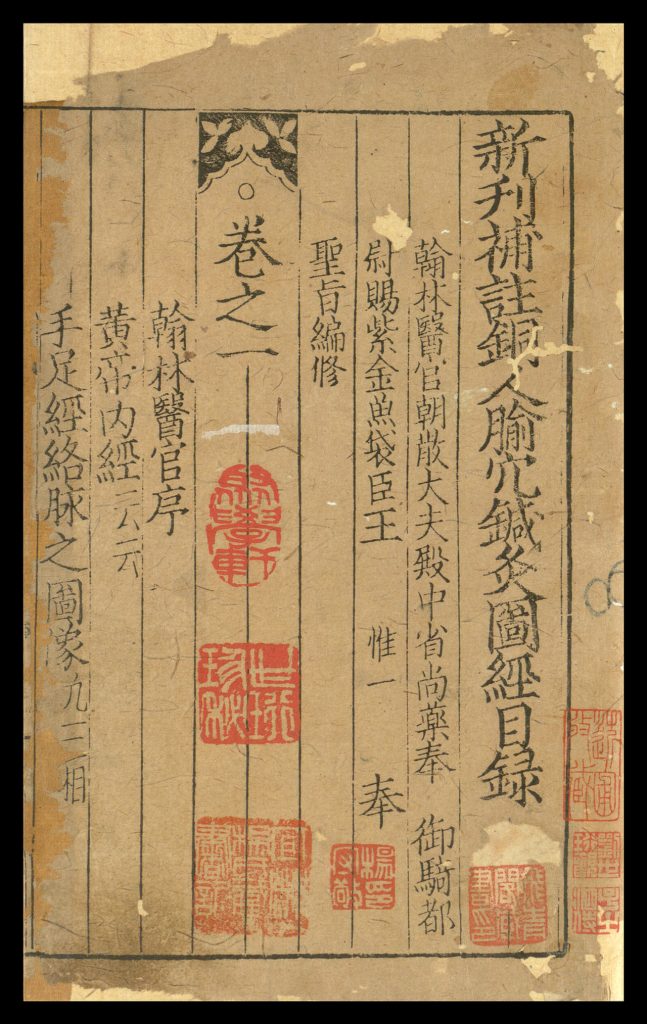 新刋補註銅人腧穴鍼灸圖經目録
翰林醫官朝散大夫殿中省尚藥奉 御騎都
尉賜紫金魚袋臣王 惟一 奉
聖旨編修
○卷之一
翰林醫官序
黄帝内經云云
手足經絡脉之圖像九三相